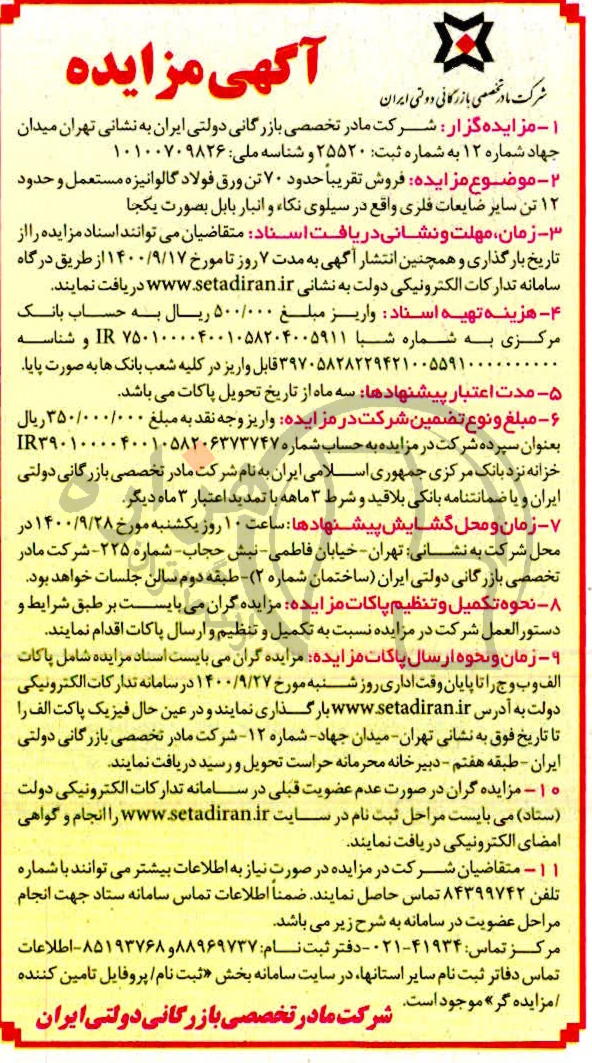 شرکت مادر تخصصی بازرگانی دولتی ایران
آگهی مزایده
۱-مزایده‌گزار: شرکت مادر تخصصی بازرگانی دولتی ایران به نشانی تهران میدان
جهاد شماره ۱۲ به شماره ثبت: ۲۵۵۲۰ و شناسه ملی: ۱۰۱۰۰۷۰۹۸۲۶
۲-موضوع مزایده: فروش تقریباً حدود ۷۰ تن ورق فولاد گالوانیزه مستعمل و حدود
۱۲ تن سایر ضایعات فلزی واقع در سیلوی نکاء و انبار بابل بصورت یکجا
۳-زمان، مهلت و نشانی دریافت اسناد: متقاضیان می توانند اسناد مزایده را از
تاریخ بارگذاری و همچنین انتشار آگهی به مدت ۷ روز تا مورخ ۱۴۰۰/۹/۱۷ از طریق درگاه
سامانه تدارکات الکترونیکی دولت به نشانی www.setadiran.ir دریافت نمایند.
۴-هزینه تهیه اسناد: واریز مبلغ ۵۰۰/۰۰۰ ریال به حساب بانک
مرکزی به شماره شبا IR ۷۵۰۱۰۰۰۰۴۰۰۱۰۵۸۲۰۴۰۰۵۹۱۱ و شناسه
۳۹۷۰۵۸۲۸۲۲۹۴۲۱۰۰۵۵۹۱۰۰۰۰۰۰۰۰۰۰ قابل واریز در کلیه شعب بانک ها به صورت پایا.
۵-مدت اعتبار پیشنهادها: سه ماه از تاریخ تحویل پاکات می باشد.
۶-مبلغ و نوع تضمین شرکت در مزایده: واریز وجه نقد به مبلغ ۳۵۰/۰۰۰/۰۰۰ ریال
بعنوان سپرده شرکت در مزایده به حساب شماره IR۳۹۰۱۰۰۰۰۴۰۰۱۰۵۸۲۰۶۳۷۳۷۴۷
خزانه نزد بانک مرکزی جمهوری اسلامی ایران به نام شرکت مادر تخصصی بازرگانی دولتی
ایران و یا ضمانتنامه بانکی بلاقید و شرط ۳ ماهه با تمدید اعتبار ۳ ماه دیگر.
۷-زمان و محل گشایش پیشنهادها: ساعت ۱۰ روز یکشنبه مورخ ۱۴۰۰/۹/۲۸ در
محل شرکت به نشانی: تهران-خیابان فاطمی-نبش حجاب-شماره ۲۲۵-شرکت مادر
تخصصی بازرگانی دولتی ایران (ساختمان شماره ۲)-طبقه دوم سالن جلسات خواهد بود.
۸-نحوه تکمیل و تنظیم پاکات مزایده: مزایده گران می بایست بر طبق شرایط و
دستورالعمل شرکت در مزایده نسبت به تکمیل و تنظیم و ارسال پاکات اقدام نمایند.
۹-زمان و نحوه ارسال پاکات مزایده: مزایده گران می بایست اسناد مزایده شامل پاکات
الف و ب و ج را تا پایان وقت اداری روز شنبه مورخ ۱۴۰۰/۹/۲۷ در سامانه تدارکات الکترونیکی
دولت به آدرس www.setadiran.ir بارگذاری نمایند و در عین حال فیزیک پاکت الف را
تا تاریخ فوق به نشانی تهران-میدان جهاد-شماره ۱۲-شرکت مادر تخصصی بازرگانی دولتی
ایران-طبقه هفتم-دبیرخانه محرمانه حراست تحویل و رسید دریافت نمایند.
۱۰-مزایده گران در صورت عدم عضویت قبلی در سامانه تدارکات الکترونیکی دولت
(ستاد) می بایست مراحل ثبت نام در سایت www.setadiran.ir را انجام و گواهی
امضای الکترونیکی دریافت نمایند.
۱۱-متقاضیان شرکت در مزایده در صورت نیاز به اطلاعات بیشتر می توانند با شماره
تلفن ۸۴۳۹۹۷۴۲ تماس حاصل نمایند. ضمناً اطلاعات تماس سامانه ستاد جهت انجام
مراحل عضویت در سامانه به شرح زیر می باشد.
مرکز تماس: ۴۱۹۳۴-۰۲۱-دفتر ثبت نام: ۸۸۹۶۹۷۳۷ و ۸۵۱۹۳۷۶۸-اطلاعات
تماس دفاتر ثبت نام سایر استانها، در سایت سامانه بخش «ثبت نام/پروفایل تامین کننده
/مزایده گر» موجود است.
شرکت مادر تخصصی بازرگانی دولتی ایران